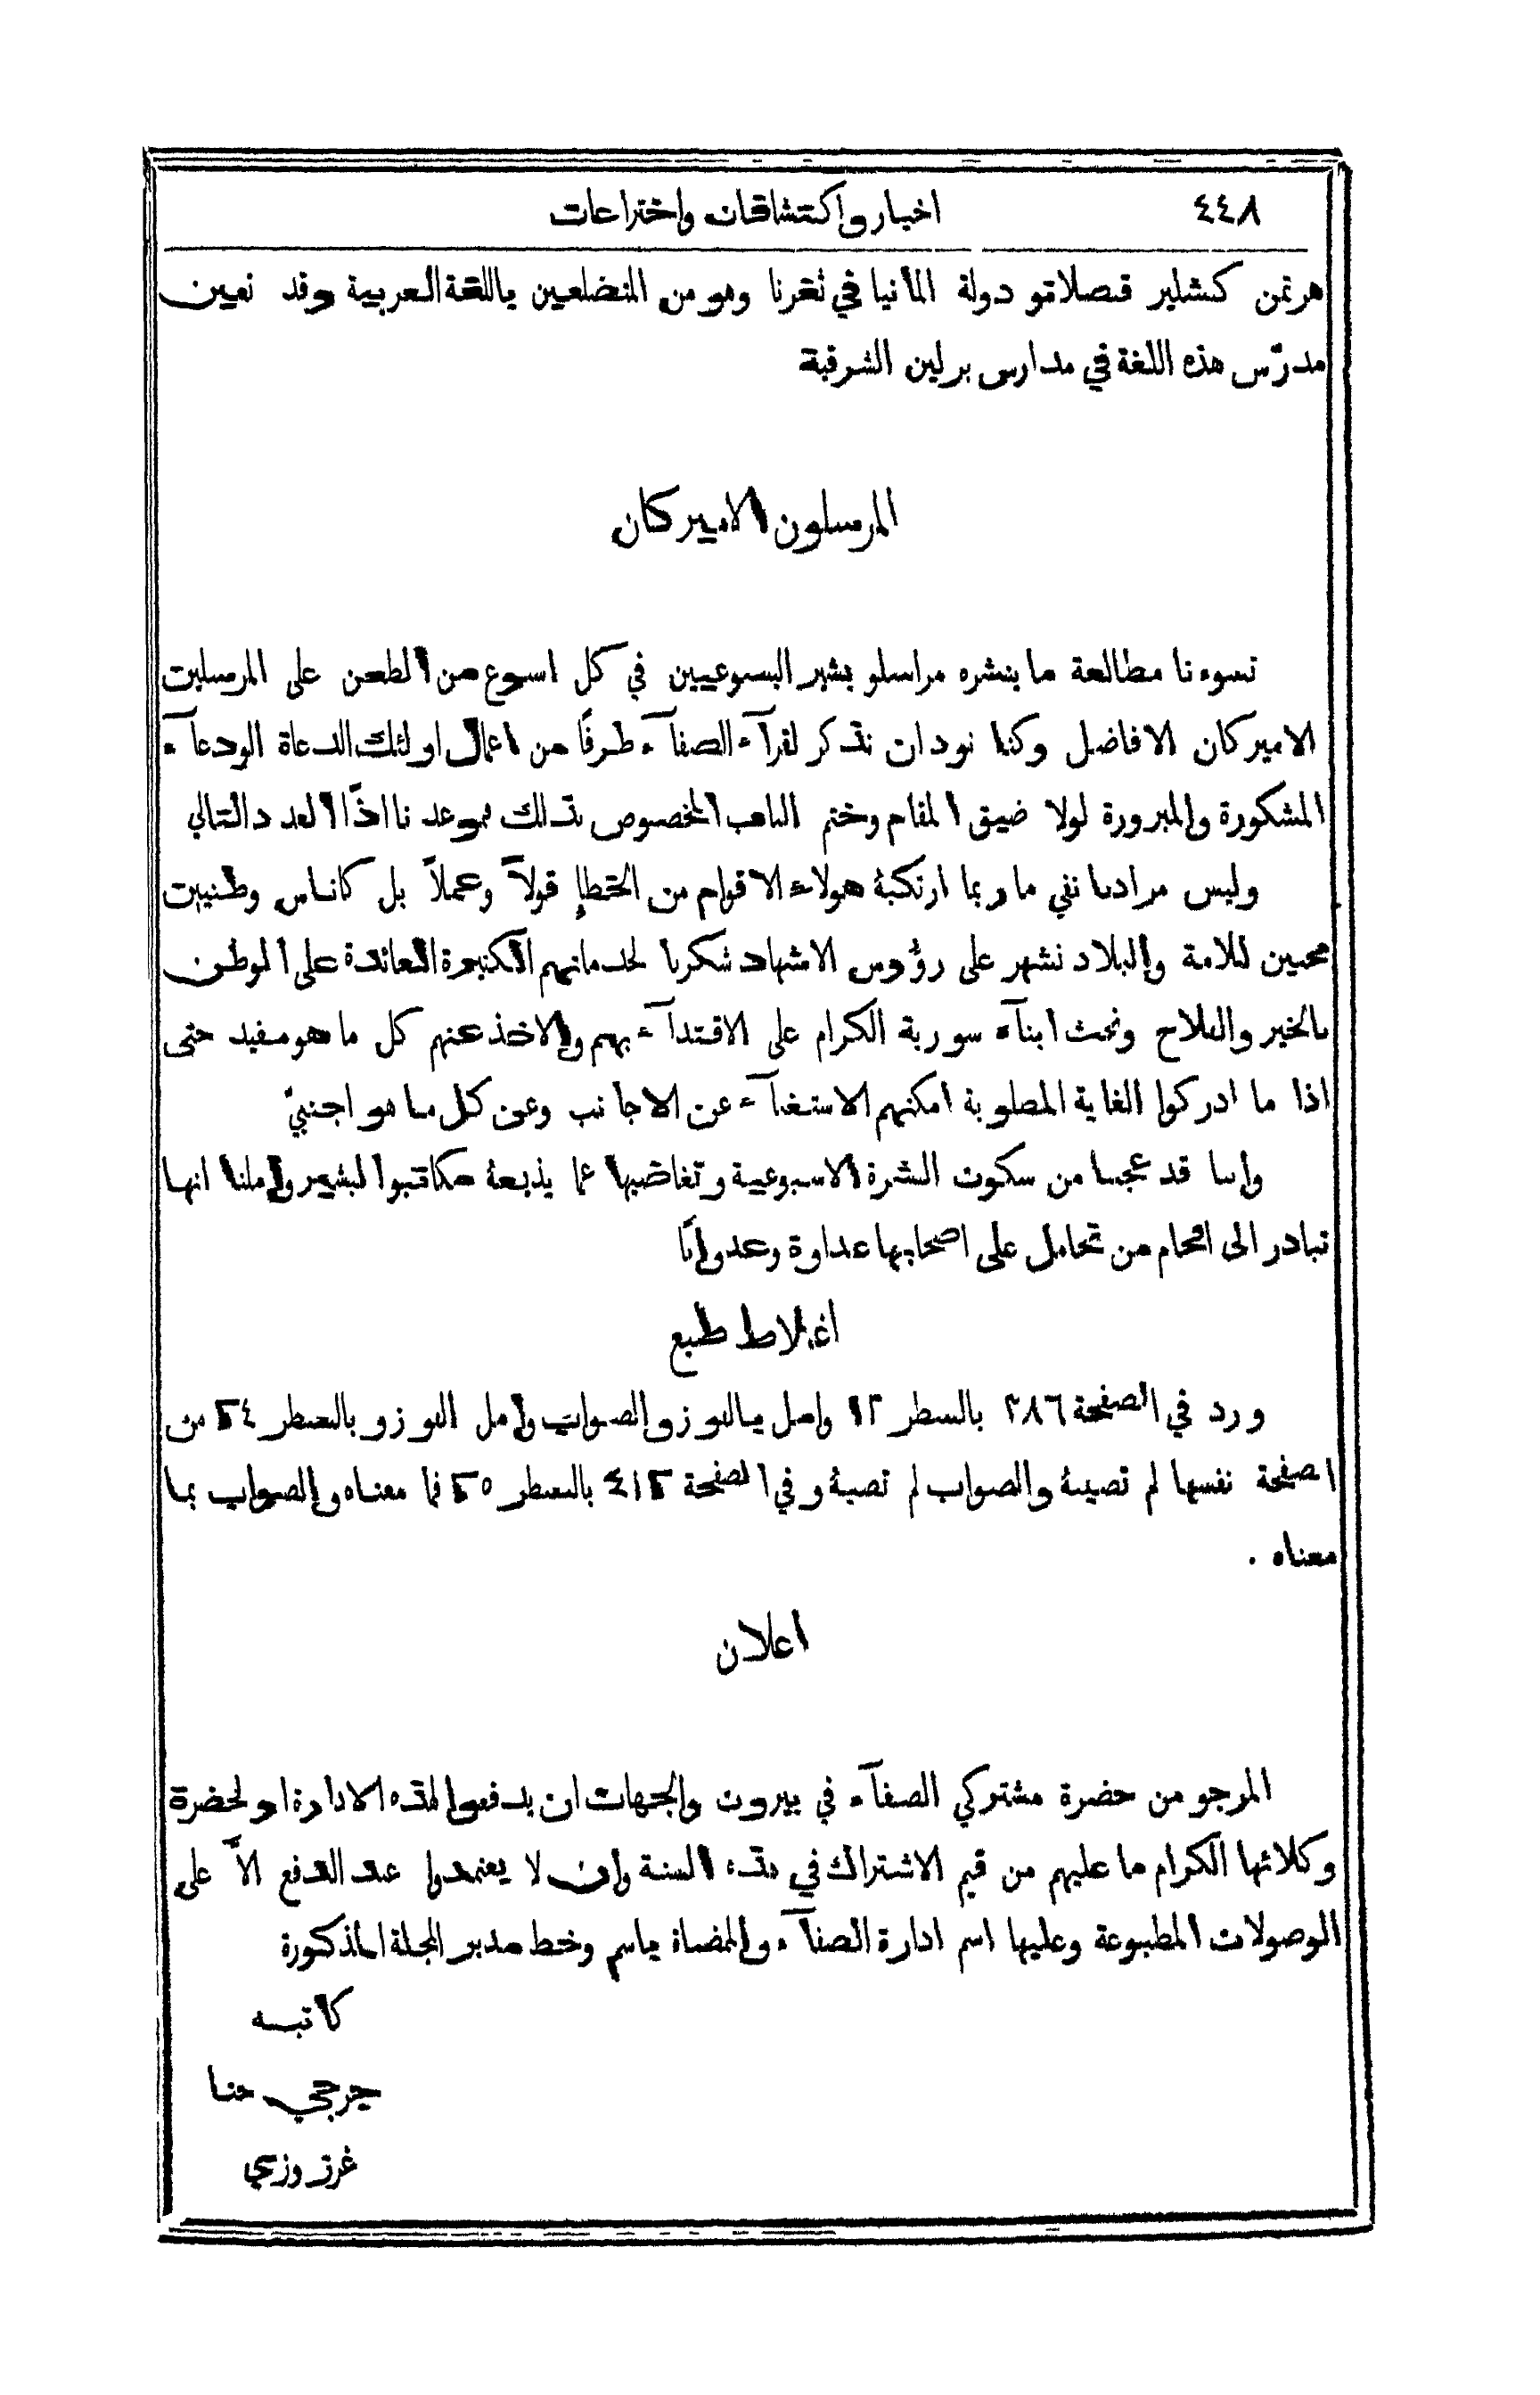 ٤٤٨ اخبار واكتشافات واختراعات
هرتمن كشلير قنصلاتو دولة المانيا في ثغرنا وهو من المتضلعين باللغة العربية وقد تعين
مدرّس هذه اللغة في مدارس برلين الشرقية
المرسلون الاميركان
تسوءنا مطالعة ما ينشره مراسلو بشير اليسوعيين في كل اسبوع من الطعن على المرسلين
الاميركان الافاضل وكنا نود ان نذكر لقرآء الصفآء طرفًا من اعمال اولئك الدعاة الودعآء
المشكورة والمبرورة لولا ضيق المقام وختم الباب المخصوص بذلك فموعدنا اذًا العدد التالي
وليس مرادنا نفي ما ربما ارتكبهُ هولاء الاقوام من الخطإِ قولاً وعملاً بل كاناس وطنيين
محبين للامة والبلاد نشهر على رؤوس الاشهاد شكرنا لخدماتهم الكثيرة العائدة على الوطن
بالخير والفلاح ونحث ابنآء سورية الكرام على الاقتدآء بهم والاخذ عنهم كل ما هو مفيد حتى
اذا ما ادركوا الغاية المطلوبة امكنهم الاستغنآء عن الاجانب وعن كل ما هو اجنبيّ
واننا قد عجبنا من سكوت النشرة الاسبوعية وتغاضيها عما يذيعهُ مكاتبوا البشير واملنا انها
تبادر الى افحام من تحامل على اصحابها عداوة وعدوانًا
اغلاط طبع
ورد في الصفحة ٣٨٦ بالسطر ١٣ وامل والصواب وامل بالسطر ٢٤ من
الصفحة نفسها لم تصيبهُ والصواب لم تصبهُ وفي الصفحة ٤١٢ بالسطر ٢٥ فما معناه والصواب بما
معناه .
اعلان
المرجو من حضرة مشتركي الصفآء في بيروت والجهات ان يدفعوا لهذه الادارة او لحضرة
وكلائها الكرام ما عليهم من قيم الاشتراك في هذه السنة وان لا يعتمدوا عند الدفع الاَّ على
الوصولات المطبوعة وعليها اسم ادارة الصفآء والممضاة باسم وخط مدير المجلة المذكورة
كاتبه
جرجي حنا
غرزوزي